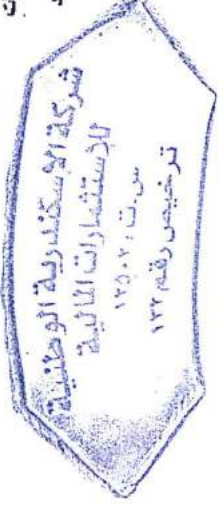 شركة الاسكندرية الوطنية
للإستثمارات المالية
س.ت ١٣٥٠٢
ترخيص رقم ١٣٢